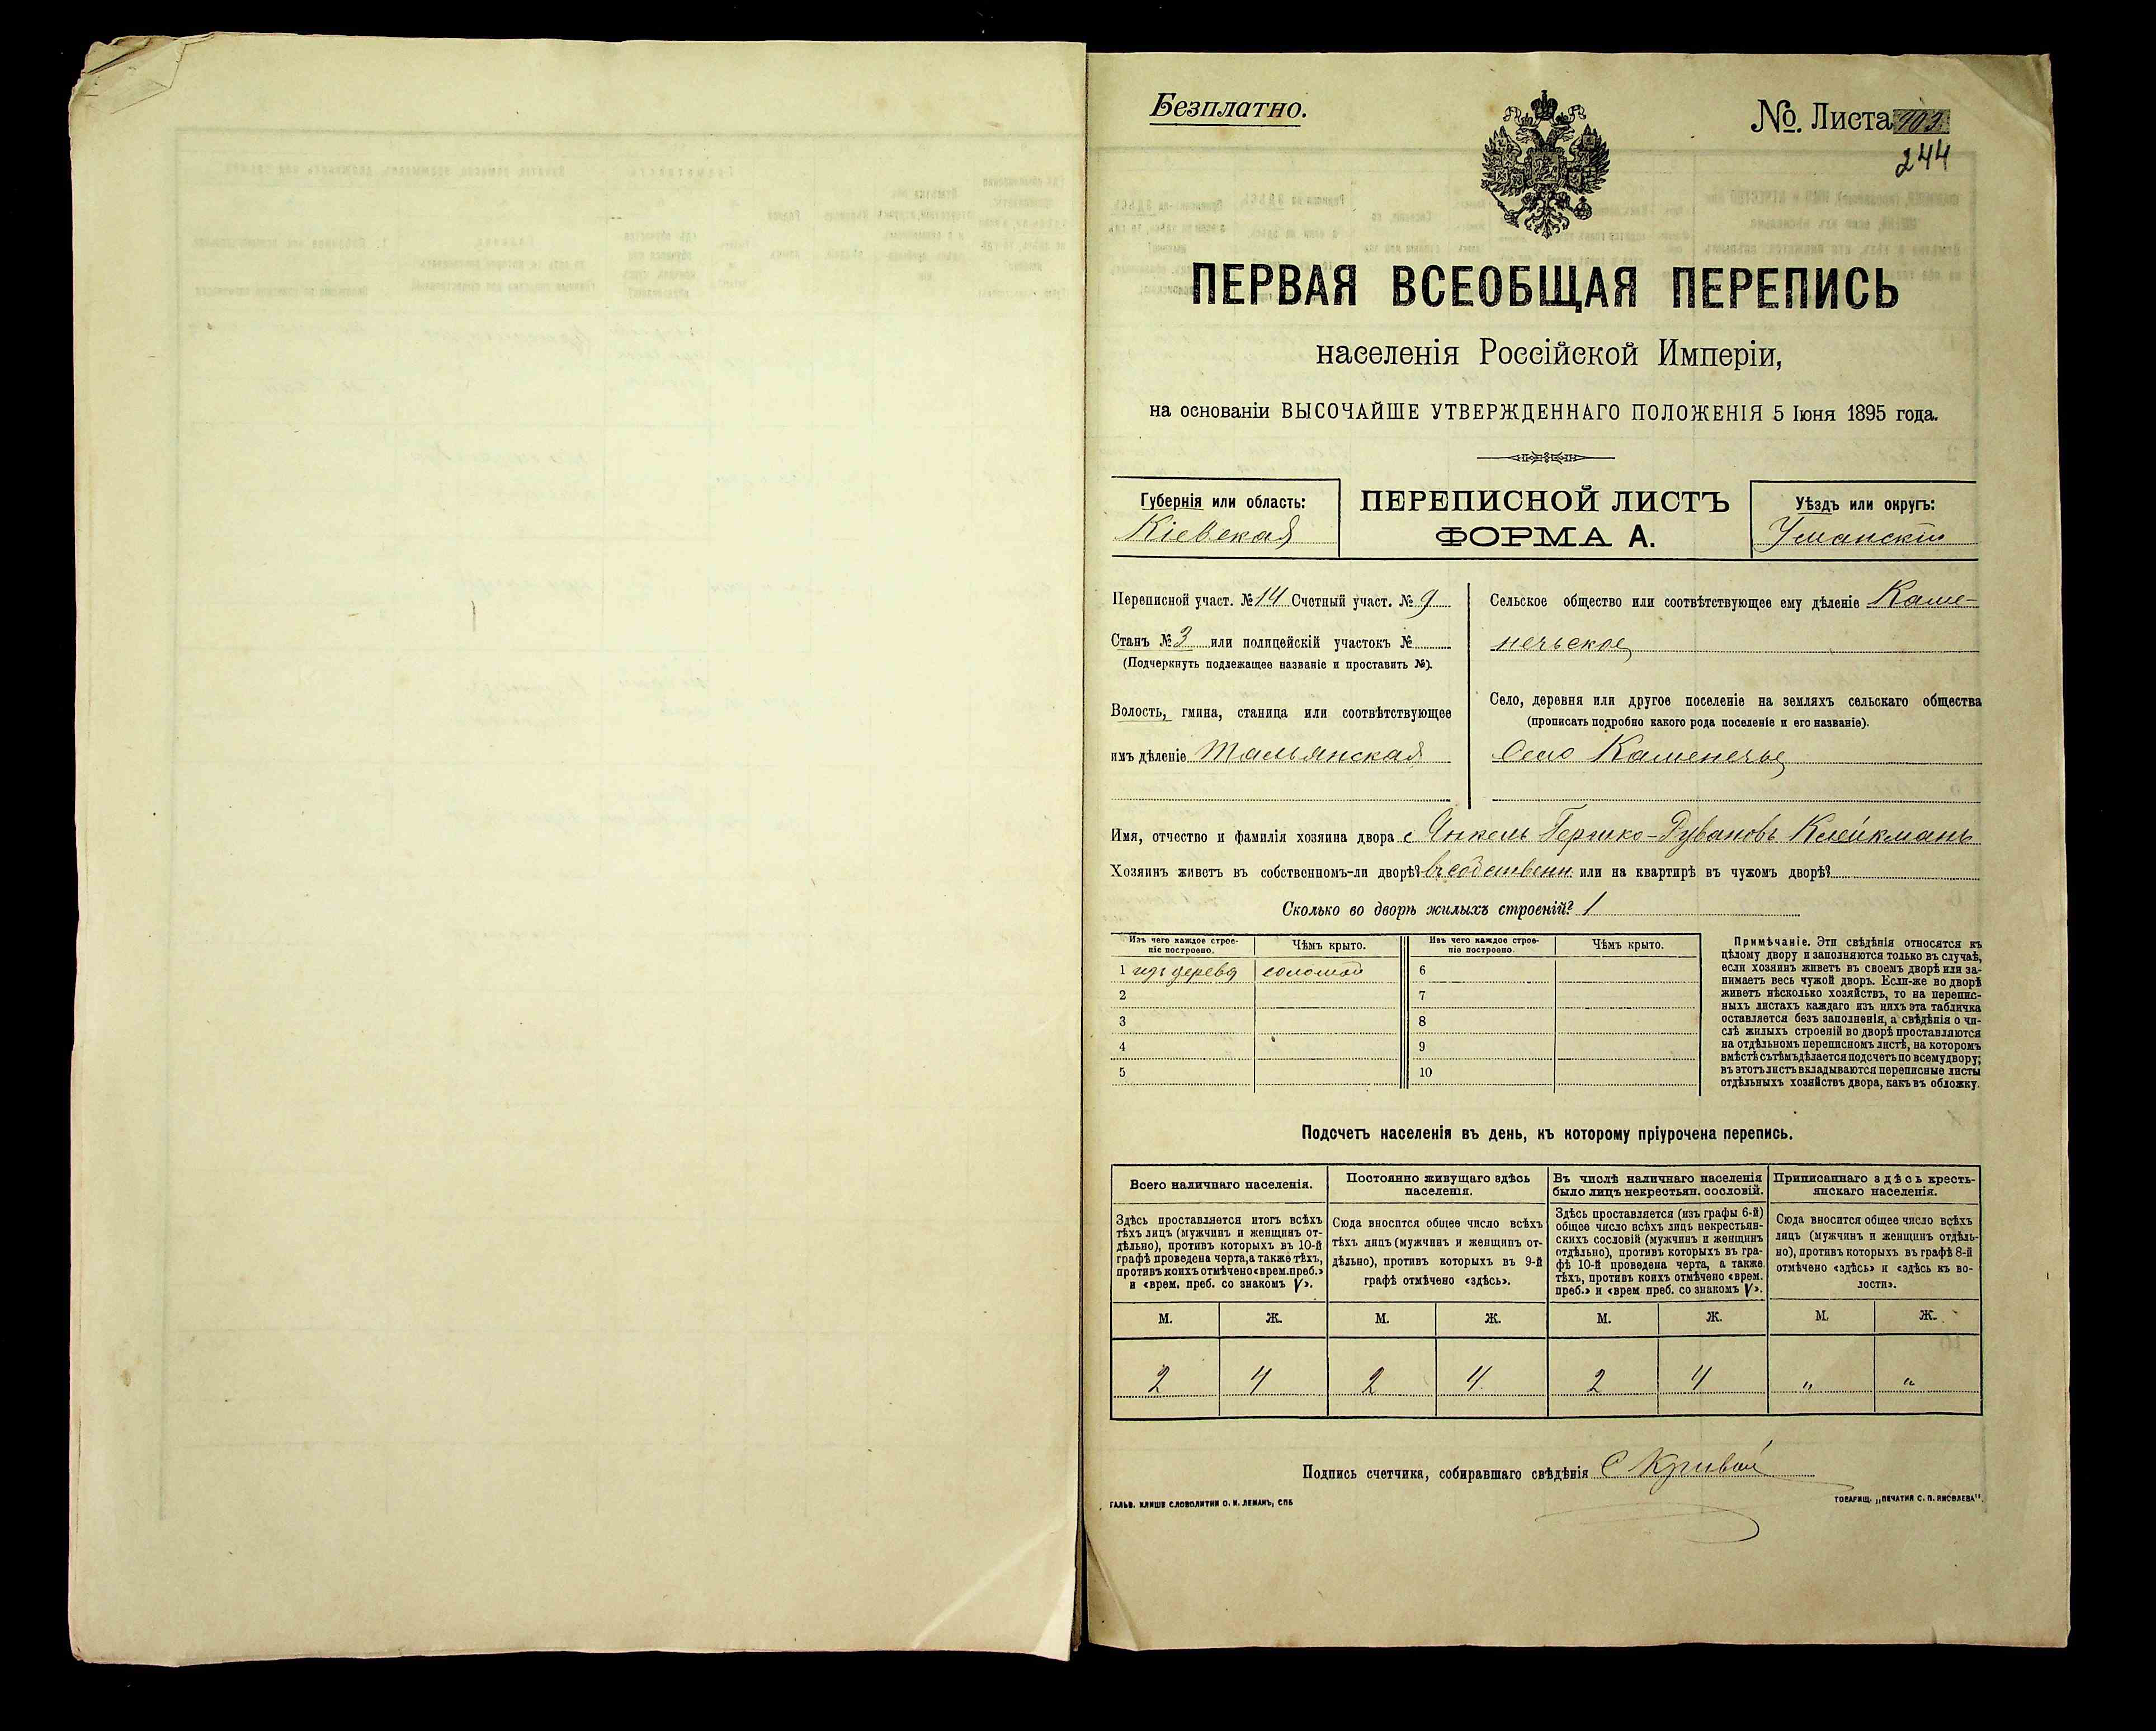 Безплатно.
№. Листа 103
244
ПЕРВАЯ ВСЕОБЩАЯ ПЕРЕПИСЬ
населенія Россійской Имперіи,
на основаніи ВЫСОЧАЙШЕ УТВЕРЖДЕННАГО ПОЛОЖЕНІЯ 5 Іюня 1895 года.
Губернія или область:
Кіевская
ПЕРЕПИСНОЙ ЛИСТЪ
ФОРМА А.
Уѣздъ или округъ:
Уманскій
Переписной участ. № 14 Счетный участ. № 9
Станъ № 3 или полицейскій участокъ №
(Подчеркнуть подлежащее названіе и проставить №).
Волость, гмина, станица или соотвѣтствующее
имъ дѣленіе Тальянская
Сельское общество или соотвѣтствующее ему дѣленіе Каме-
нечьское
Село, деревня или другое поселеніе на земляхъ сельскаго общества
(прописать подробно какого рода поселеніе и его названіе).
Село Каменечье
Имя, отчество и фамилія хозяина двора Янкель Гершко-Рувановъ Клейкманъ
Хозяинъ живетъ въ собственномъ-ли дворѣ? въ собственн. или на квартирѣ въ чужомъ дворѣ?
Сколько во дворѣ жилыхъ строеній? 1
Изъ чего каждое строе-
ніе построено.
Чѣмъ крыто.
Изъ чего каждое строе-
ніе построено.
Чѣмъ крыто.
1 изъ дерева соломой
2
3
4
5
6
7
8
9
10
Примѣчаніе. Эти свѣдѣнія относятся къ
цѣлому двору и заполняются только въ случаѣ,
если хозяинъ живетъ въ своемъ дворѣ или за-
нимаетъ весь чужой дворъ. Если-же во дворѣ
живетъ нѣсколько хозяйствъ, то на перепис-
ныхъ листахъ каждаго изъ нихъ эта табличка
оставляется безъ заполненія, а свѣдѣнія о чи-
слѣ жилыхъ строеній во дворѣ проставляются
на отдѣльномъ переписномъ листѣ, на которомъ
вмѣстѣ съ тѣмъ дѣлается подсчетъ по всему двору;
въ этотъ листъ вкладываются переписные листы
отдѣльныхъ хозяйствъ двора, какъ въ обложку.
Подсчетъ населенія въ день, къ которому пріурочена перепись.
Всего наличнаго населенія.
Здѣсь проставляется итогъ всѣхъ
тѣхъ лицъ (мужчинъ и женщинъ от-
дѣльно), противъ которыхъ въ 10-й
графѣ проведена черта, а также тѣхъ,
противъ коихъ отмѣчено «врем. преб.»
и «врем. преб. со знакомъ V».
Постоянно живущаго здѣсь
населенія.
Сюда вносится общее число всѣхъ
тѣхъ лицъ (мужчинъ и женщинъ от-
дѣльно), противъ которыхъ въ 9-й
графѣ отмѣчено «здѣсь».
Въ числѣ наличнаго населенія
было лицъ некрестьян. сословій.
Здѣсь проставляется (изъ графы 6-й)
общее число всѣхъ лицъ некрестьян-
скихъ сословій (мужчинъ и женщинъ
отдѣльно), противъ которыхъ въ гра-
фѣ 10-й проведена черта, а также
тѣхъ, противъ коихъ отмѣчено «врем.
преб.» и «врем преб. со знакомъ V».
Приписаннаго здѣсь кресть-
янскаго населенія.
Сюда вносится общее число всѣхъ
лицъ (мужчинъ и женщинъ отдѣль-
но), противъ которыхъ въ графѣ 8-й
отмѣчено «здѣсь» и «здѣсь къ во-
лости».
М. Ж. М. Ж. М. Ж. М. Ж.
2 4 2 4 2 4 " "
Подпись счетчика, собиравшаго свѣдѣнія С Кривой
ГАЛЬВ. КЛИШЕ СЛОВОЛИТНИ О. И. ЛЕМАНЪ, СПБ
ТОВАРИЩ. „ПЕЧАТНЯ С. П. ЯКОВЛЕВА".